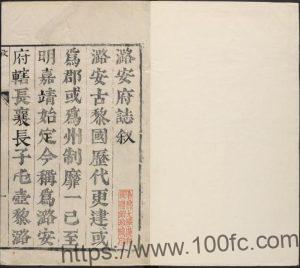 潞安府誌叙
潞安古黎國歷代更建或
為郡或為州制靡一已至
明嘉靖始定今稱為潞安
府轄長襄長子屯壺黎潞
www.100fc.com